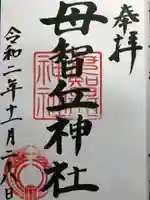 奉拝
母智丘神社
令和二年十一月二八日